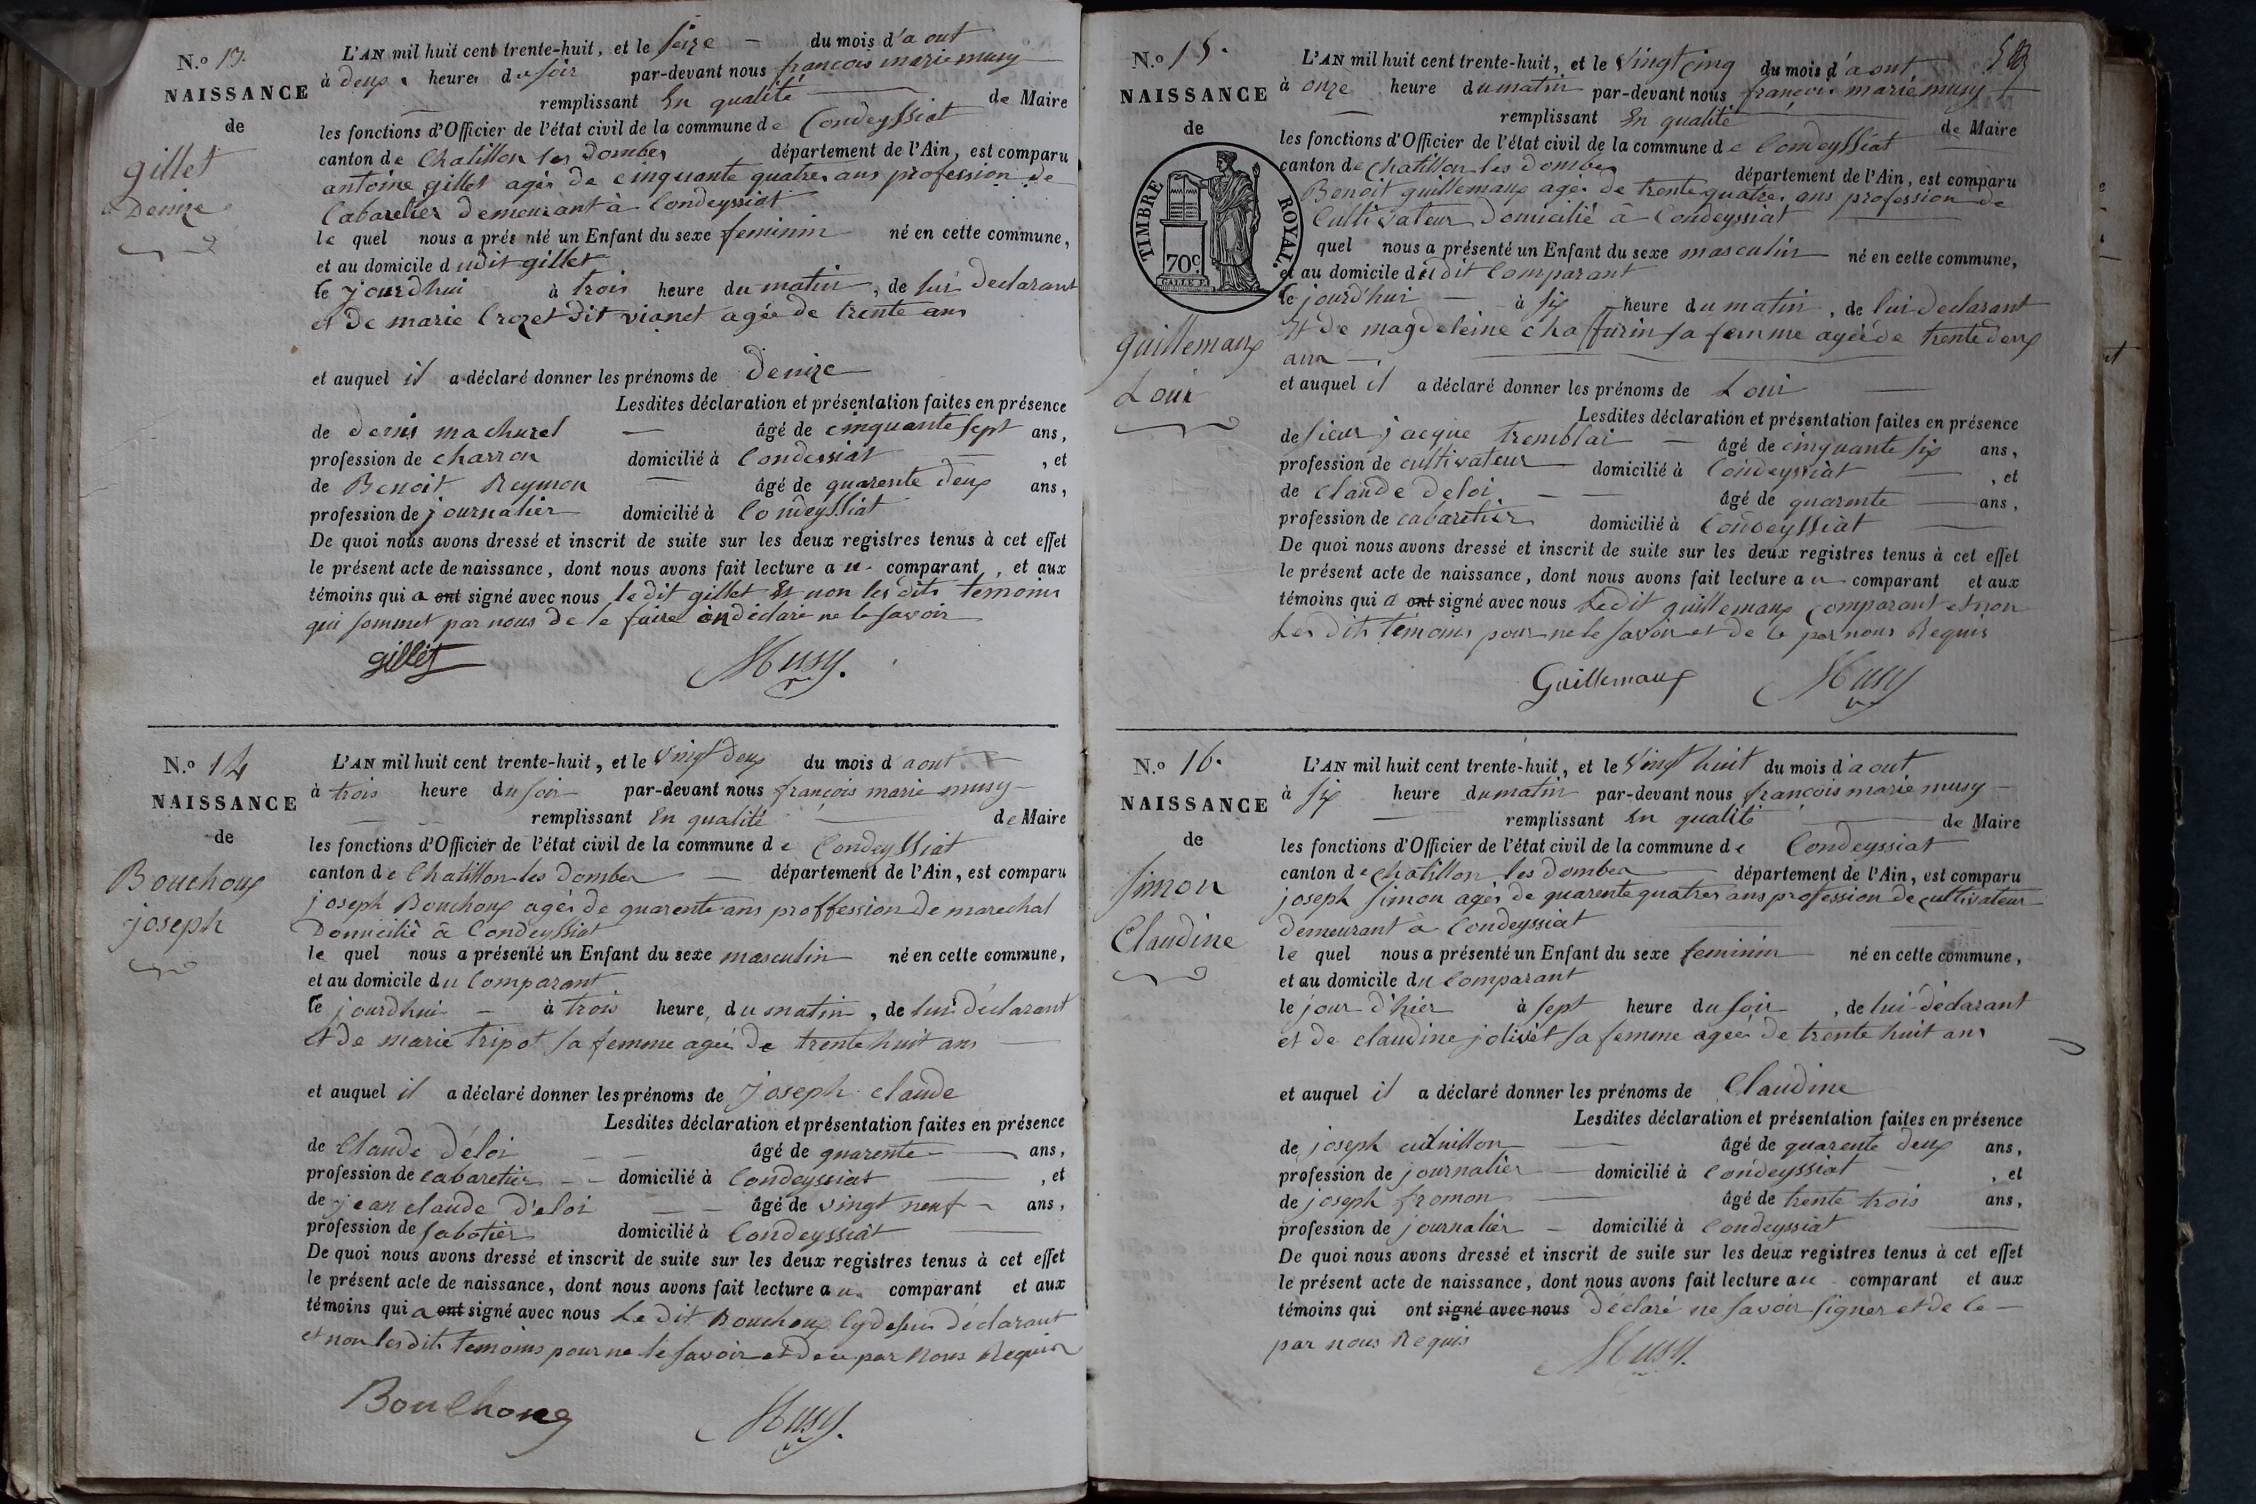 N.º 13.
NAISSANCE
de
gillet
Denize
L'AN mil huit cent trente-huit, et le seize du mois d'aout
à deux heures du soir par-devant nous françois marie musy
remplissant En qualité de Maire
les fonctions d'Officier de l'état civil de la commune de Condeyssiat
canton de Chatillon les Dombes département de l'Ain, est comparu
antoine gillet agés de cinquante quatres ans profession de
Cabaretier Demeurant à Condeyssiat
le quel nous a présenté un Enfant du sexe feminin né en cette commune,
et au domicile dudit gillet
le jourdhui à trois heure du matin, de lui declarant
et De marie Crozet dit vianet agée de trente ans
et auquel il a déclaré donner les prénoms de Denize
Lesdites déclaration et présentation faites en présence
de denis machurel âgé de cinquante sept ans,
profession de charron domicilié à Condessiat, et
de Benoit Reymon âgé de quarente deux ans,
profession de journalier domicilié à Condeyssiat
De quoi nous avons dressé et inscrit de suite sur les deux registres tenus à cet effet
le présent acte de naissance, dont nous avons fait lecture au comparant, et aux
témoins qui a ont signé avec nous ledit gillet Et non les dits temoins
qui sommet par nous De le faire on déclaré ne le savoir
gillet Musy.
N.º 14
NAISSANCE
de
Bouchoux
joseph
L'AN mil huit cent trente-huit, et le vingt deux du mois d'aout
à trois heure du soir par-devant nous françois marie musy
remplissant En qualité de Maire
les fonctions d'Officier de l'état civil de la commune de Condeyssiat
canton de Chatillon les Dombes département de l'Ain, est comparu
joseph Bouchoux agés de quarente ans proffession De marechal
Domicilié à Condeyssiat
le quel nous a présenté un Enfant du sexe masculin né en cette commune,
et au domicile du Comparant
le jourdhui à trois heure, du matin, de lui déclarant
et De marie tripot sa femme ageé de trente huit ans
et auquel il a déclaré donner les prénoms de joseph claude
Lesdites déclaration et présentation faites en présence
de Claude déloi âgé de quarente ans,
profession de cabaretier domicilié à Condeyssiat, et
de jean claude D'eloi âgé de vingt neuf ans,
profession de sabotier domicilié à Condeyssiat
De quoi nous avons dressé et inscrit de suite sur les deux registres tenus à cet effet
le présent acte de naissance, dont nous avons fait lecture au comparant et aux
témoins qui a ont signé avec nous Le Dit Bouchoux Cydesus déclarant
et non les dits temoins pour ne le savoir et de ce par Nous Requis
Bouchoux Musy.
N.º 15.
NAISSANCE
de
TIMBRE ROYAL.
70c
guillemaux
Loui
L'AN mil huit cent trente-huit, et le vingt cinq du mois d'aout
à onze heure du matin par-devant nous françois marie musy
remplissant En qualité de Maire
les fonctions d'Officier de l'état civil de la commune de Condeyssiat
canton de chatillon les Dombes département de l'Ain, est comparu
Benoit guillemaux ages de trente quatres ans profession de
Cultivateur Domicilié à Condeyssiat
quel nous a présenté un Enfant du sexe masculin né en cette commune,
et au domicile du dit Comparant
le jourd'hui à six heure du matin, de lui declarant
Et de magdeleine chaffurin sa femme ageéde trente deux
ans
et auquel il a déclaré donner les prénoms de Loui
Lesdites déclaration et présentation faites en présence
de sieur jacque tremblai âgé de cinquante six ans,
profession de cultivateur domicilié à Condeyssiat, et
de claude deloi âgé de quarente ans,
profession de cabaretier domicilié à Condeyssiat
De quoi nous avons dressé et inscrit de suite sur les deux registres tenus à cet effet
le présent acte de naissance, dont nous avons fait lecture au comparant et aux
témoins qui a ont signé avec nous Ledit guillemaux Comparant et non
Les dits témoins pour ne le savoir et de ce par nous Requis
Guillemaux Musy
N.º 16.
NAISSANCE
de
simon
Claudine
L'AN mil huit cent trente-huit, et le vingt huit du mois d'aout
à six heure du matin par-devant nous françois marie musy
remplissant En qualité de Maire
les fonctions d'Officier de l'état civil de la commune de Condeyssiat
canton de chatillon les Dombes département de l'Ain, est comparu
joseph simon agés de quarente quatres ans profession De cultivateur
demeurant à Condeyssiat
le quel nous a présenté un Enfant du sexe feminin né en cette commune,
et au domicile du Comparant
le jour d'hier à sept heure du soir, de lui déclarant
et de claudine jolivet sa femme ageé de trente huit ans
et auquel il a déclaré donner les prénoms de Claudine
Lesdites déclaration et présentation faites en présence
de joseph âgé de quarente deux ans,
profession de journalier domicilié à Condeyssiat, et
de joseph fromon âgé de trente trois ans,
profession de journalier domicilié à Condeyssiat
De quoi nous avons dressé et inscrit de suite sur les deux registres tenus à cet effet
le présent acte de naissance, dont nous avons fait lecture au comparant et aux
témoins qui ont signé avec nous déclaré ne savoir signer et de ce
par nous Requis
Musy.